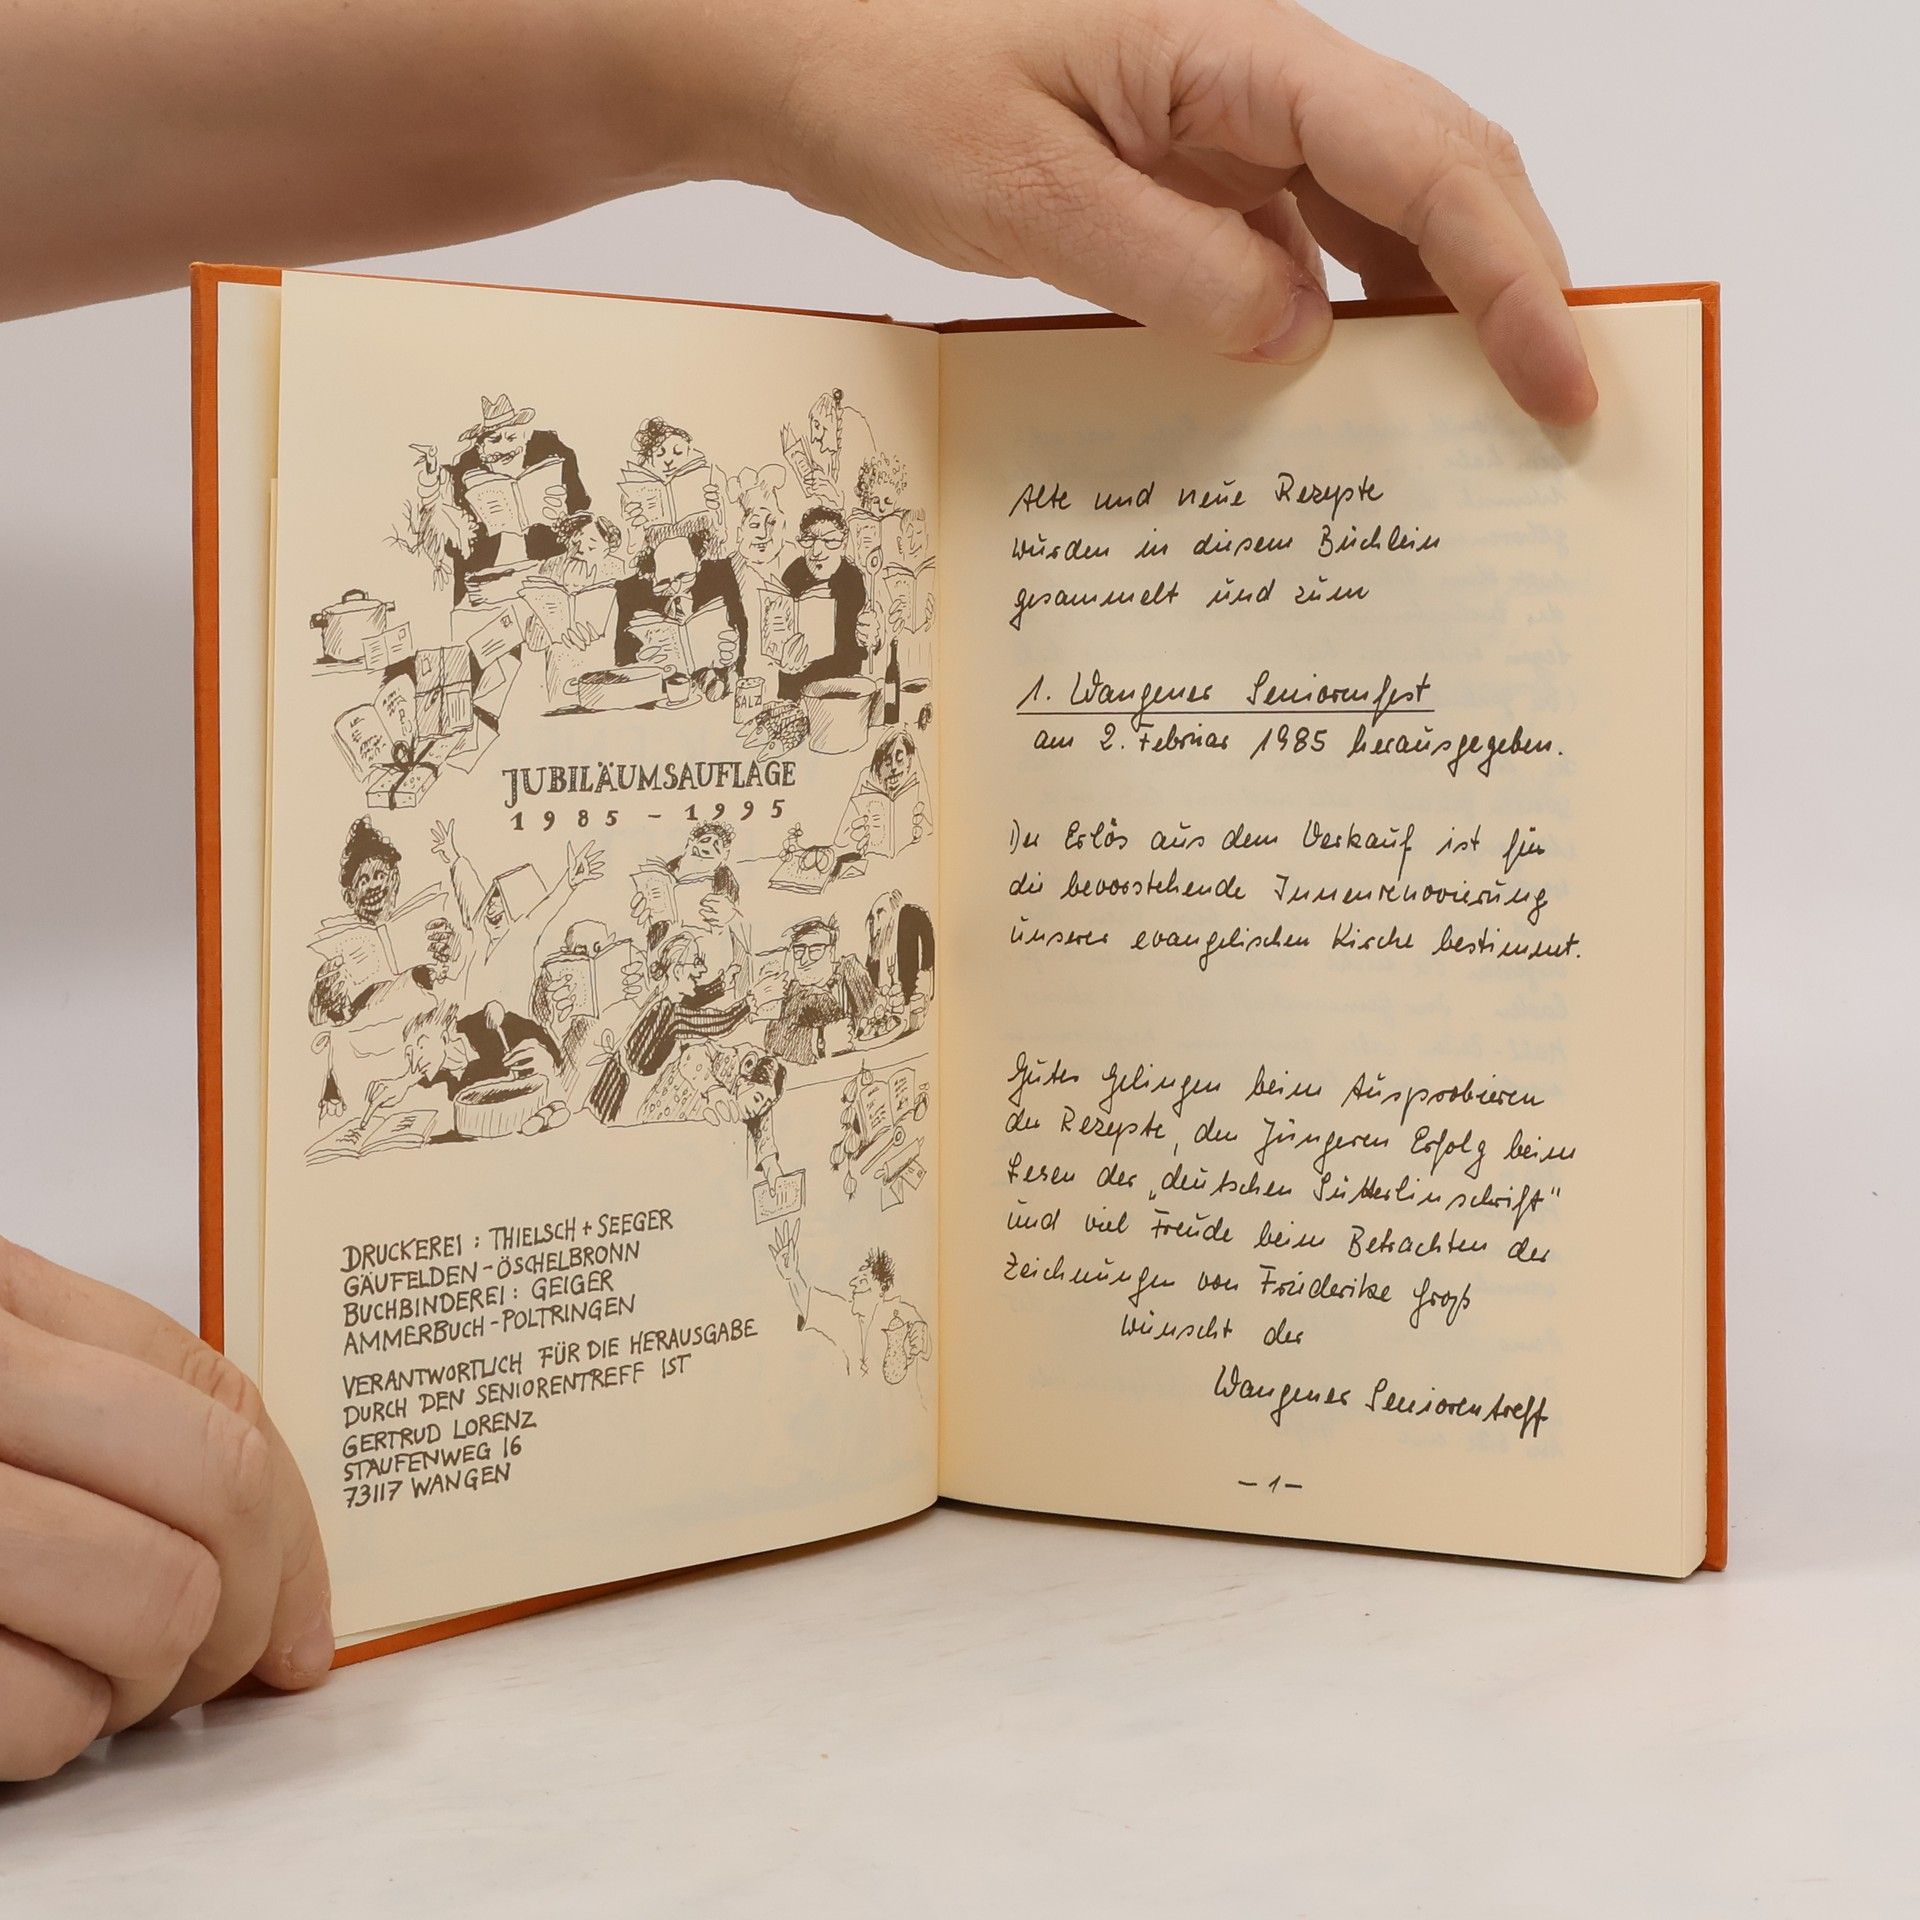 SALZ
JUBILÄUMSAUFLAGE
1985 - 1995
DRUCKEREI : THIELSCH + SEEGER
GÄUFELDEN-ÖSCHELBRONN
BUCHBINDEREI : GEIGER
AMMERBUCH-POLTRINGEN
VERANTWORTLICH FÜR DIE HERAUSGABE
DURCH DEN SENIORENTREFF IST
GERTRUD LORENZ
STAUFENWEG 16
73117 WANGEN
Alte und neue Rezepte
wurden in diesem Büchlein
gesammelt und zum
1. Wangener Seniorenfest
am 2. Februar 1985 herausgegeben.
Der Erlös aus dem Verkauf ist für
die bevorstehende Innenrenovierung
unserer evangelischen Kirche bestimmt.
Gutes Gelingen beim Ausprobieren
der Rezepte, den Jüngeren Erfolg beim
Lesen der „deutschen Sütterlinschrift"
und viel Freude beim Betrachten der
Zeichnungen von Friederike Groß
wünscht der
Wangener Seniorentreff
- 1 -